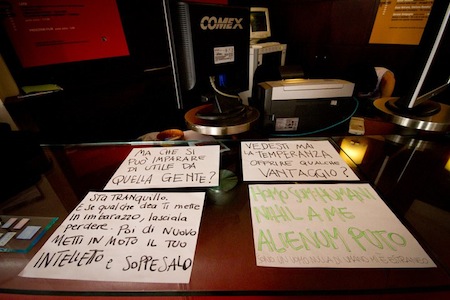 COMEX
MA CHE SI
PUÒ IMPARARE
DI UTILE DA
QUELLA GENTE?
VEDESTI MAI
LA TEMPERANZA
OFFRIRE QUALCHE
VANTAGGIO?
STA TRANQUILLO.
E SE QUALCHE IDEA TI METTE
IN IMBARAZZO, LASCIALA
PERDERE. POI DI NUOVO
METTI IN MOTO IL TUO
INTELLETTO E SOPPESALO
HOMO SUM HUMANI
NIHIL A ME
ALIENUM PUTO
SONO UN UOMO NULLA DI UMANO MI È ESTRANEO